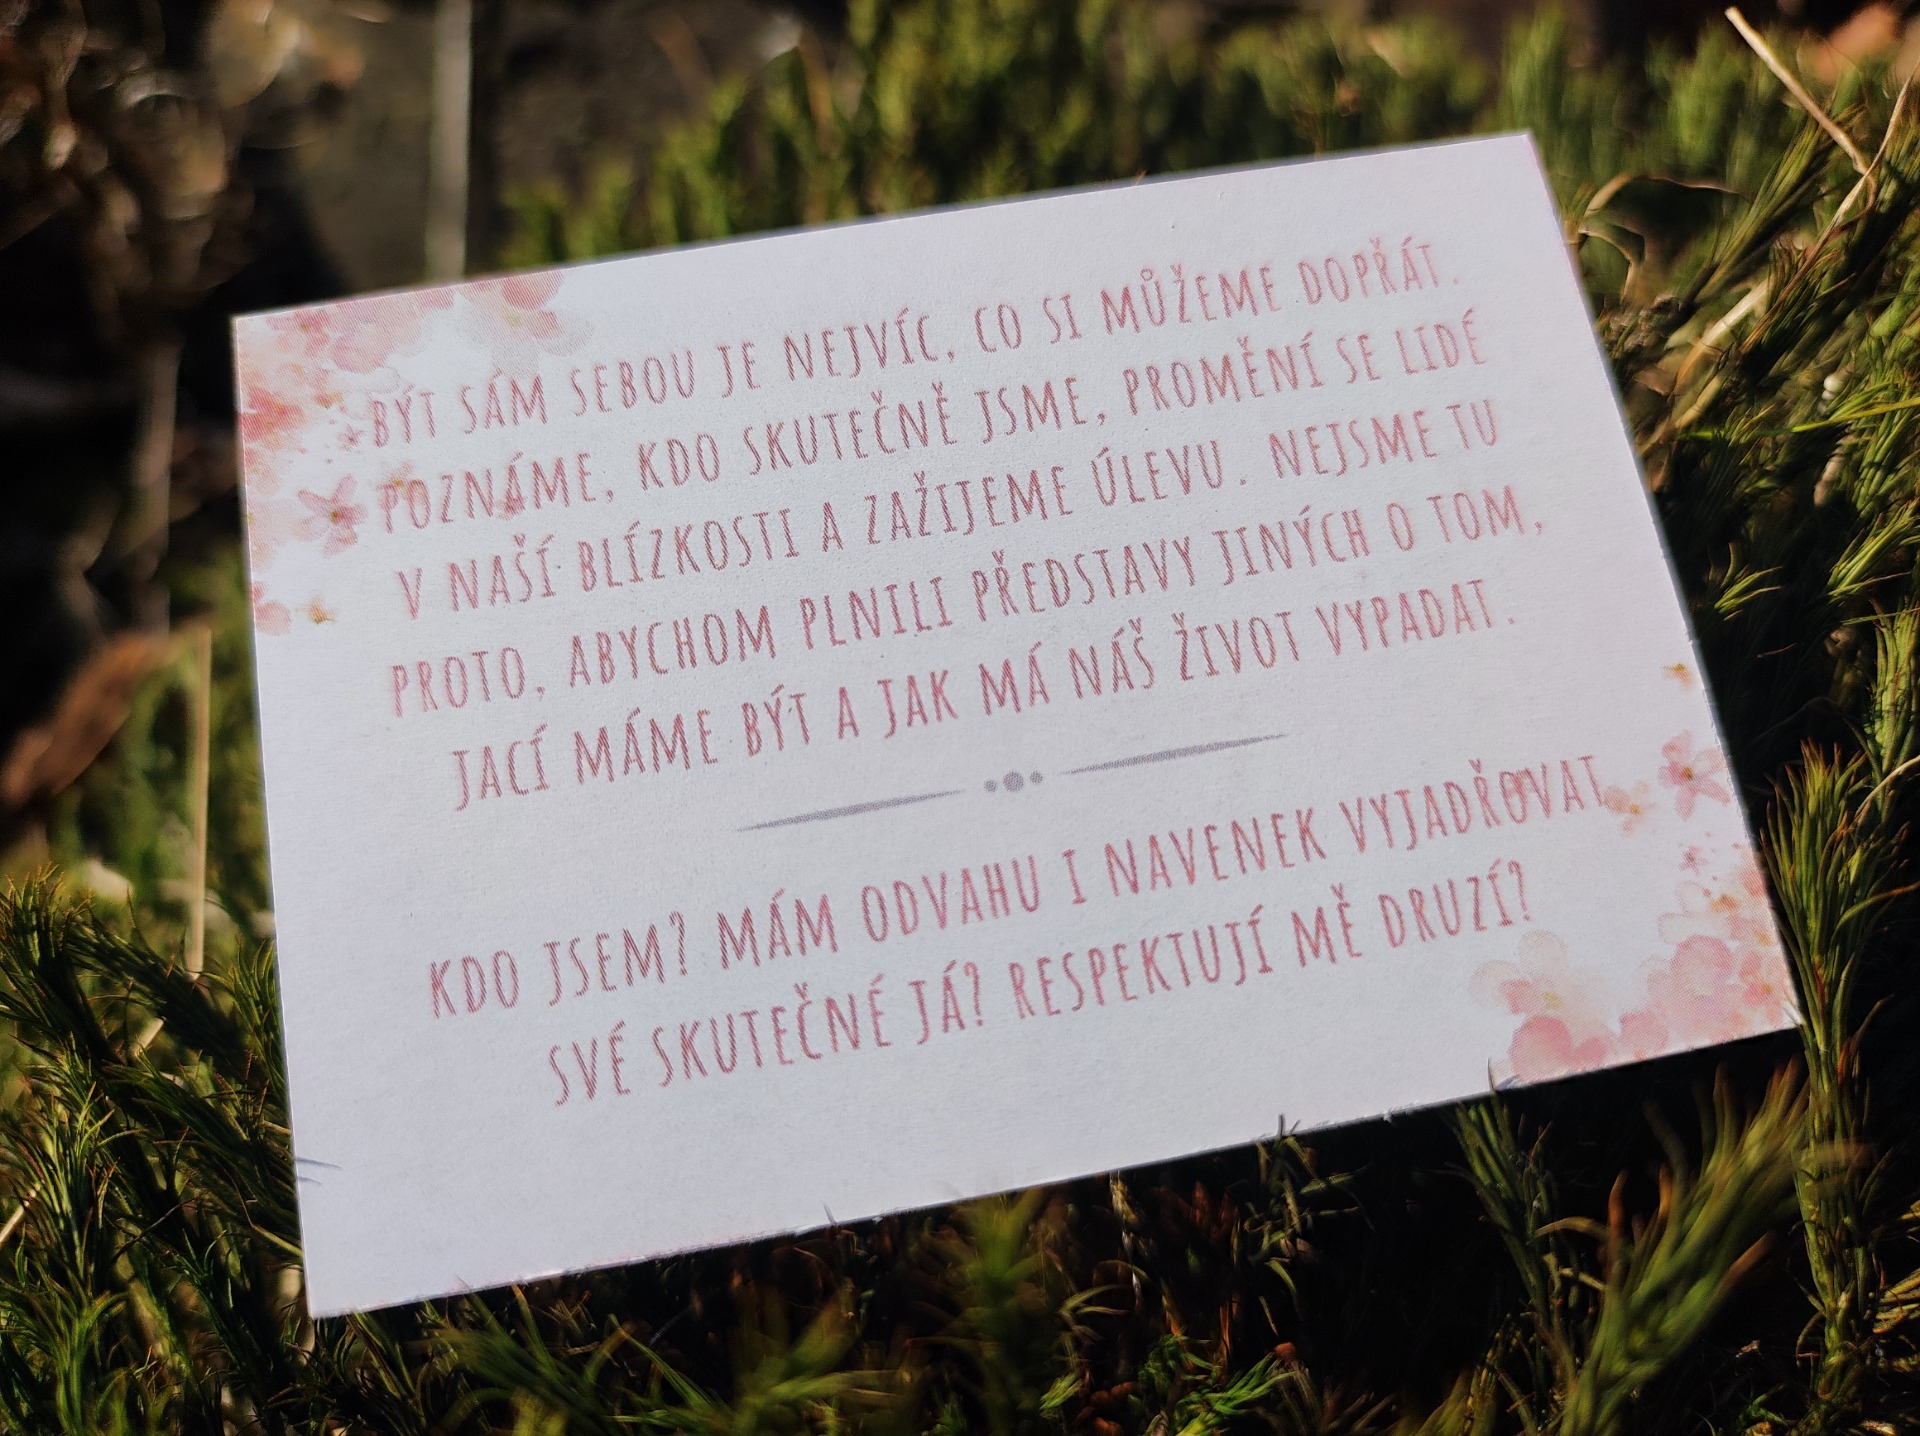 BÝT SÁM SEBOU JE NEJVÍC, CO SI MŮŽEME DOPŘÁT.
POZNÁME, KDO SKUTEČNĚ JSME, PROMĚNÍ SE LIDÉ
V NAŠÍ BLÍZKOSTI A ZAŽIJEME ÚLEVU. NEJSME TU
PROTO, ABYCHOM PLNILI PŘEDSTAVY JINÝCH O TOM,
JACÍ MÁME BÝT A JAK MÁ NÁŠ ŽIVOT VYPADAT.
KDO JSEM? MÁM ODVAHU I NAVENEK VYJADŘOVAT
SVÉ SKUTEČNÉ JÁ? RESPEKTUJÍ MĚ DRUZÍ?